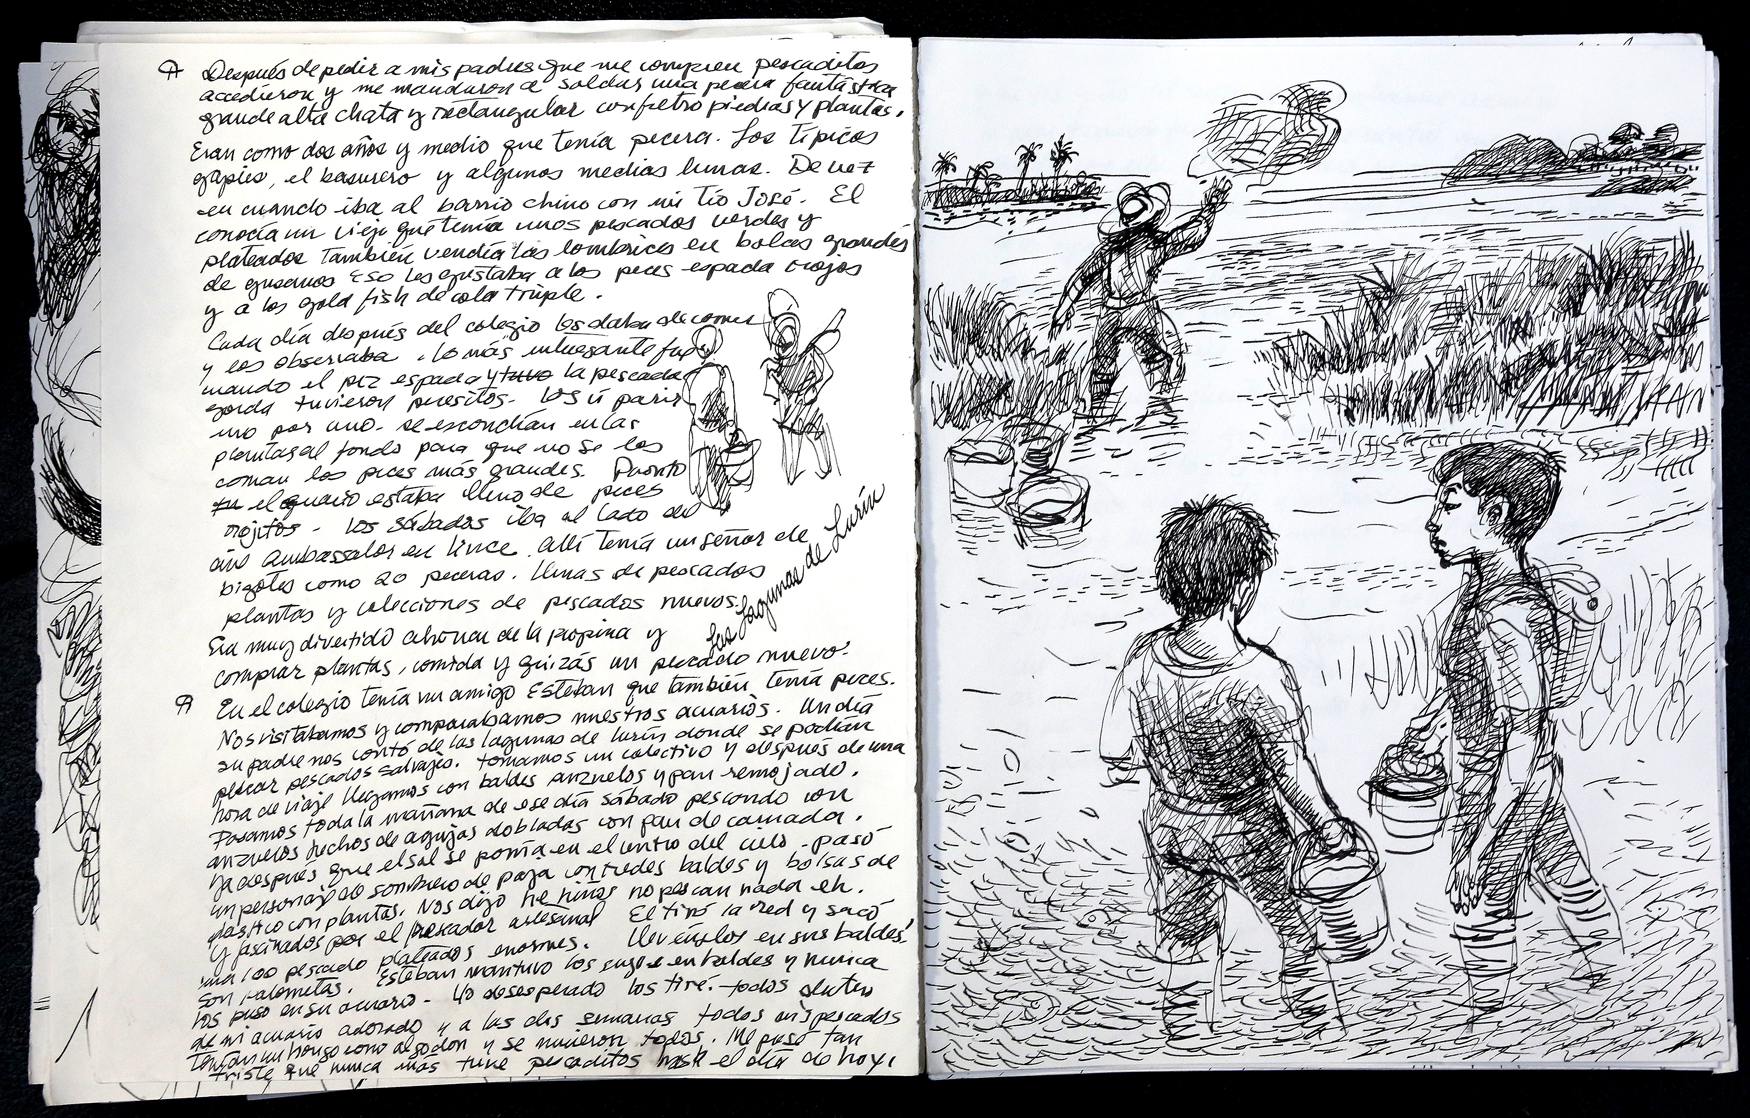 Después de pedir a mis padres que me compren pescaditos
accedieron y me mandaron a soldar una pecera fantástica
grande alta chata y rectangular con filtro piedras y plantas.
Eran como dos años y medio que tenía pecera. Los típicos
gapies, el basurero y algunos medias lunas. De vez
en cuando iba al barrio chino con mi tío José. El
conocía un viejo que tenía unos pescados verdes y
plateados También vendía las lombrices en bolas grandes
de gusanos Eso les gustaba a los peces espada rojos
y a los gold fish de cola triple.
Cada día después del colegio les daba de comer
y los observaba. Lo más interesante fue
cuando el pez espada y tuvo la pescada
gorda tuvieron pecesitos. Los vi parir
uno por uno. se escondían en las
plantas al fondo para que no se los
coman los peces más grandes. Pronto
en el acuario estaba lleno de peces
rojitos. Los sábados iba al lado del
cine Ambassador en Lince. Allí tenía un señor de
bigotes como 20 peceras. llenas de pescados
plantas y colecciones de pescados nuevos.
Era muy divertido ahorrar de la propina y
comprar plantas, comida y quizás un pescado nuevo.
Las lagunas de Lurín
En el colegio tenía un amigo Esteban que también tenía peces.
Nos visitabamos y comparabamos nuestros acuarios. Un día
su padre nos contó de las lagunas de Lurín donde se podían
pescar pescados salvajes. tomamos un colectivo y después de una
hora de viaje llegamos con baldes anzuelos y pan remojado.
Pasamos toda la mañana de ese día sábado pescando con
anzuelos hechos de agujas dobladas con pan de carnada.
Ya después que el sol se ponía en el centro del cielo. pasó
un personaje de sombrero de paja con redes baldes y bolsas de
plástico con plantas. Nos dijo he niños no pescan nada eh.
Y fascinados por el pescador artesanal El tiró la red y sacó
100 pescado plateados enormes. llévenselos en sus baldes!
son palometas. Esteban mantuvo los suyos en baldes y nunca
los puso en su acuario. Yo desesperado los tiré. todos dentro
de mi acuario adorado y a las dis semanas todos mis pescados
tenían un hongo como algodon y se murieron todos. Me puso tan
triste que nunca más tuve pescaditos hasta el día de hoy.